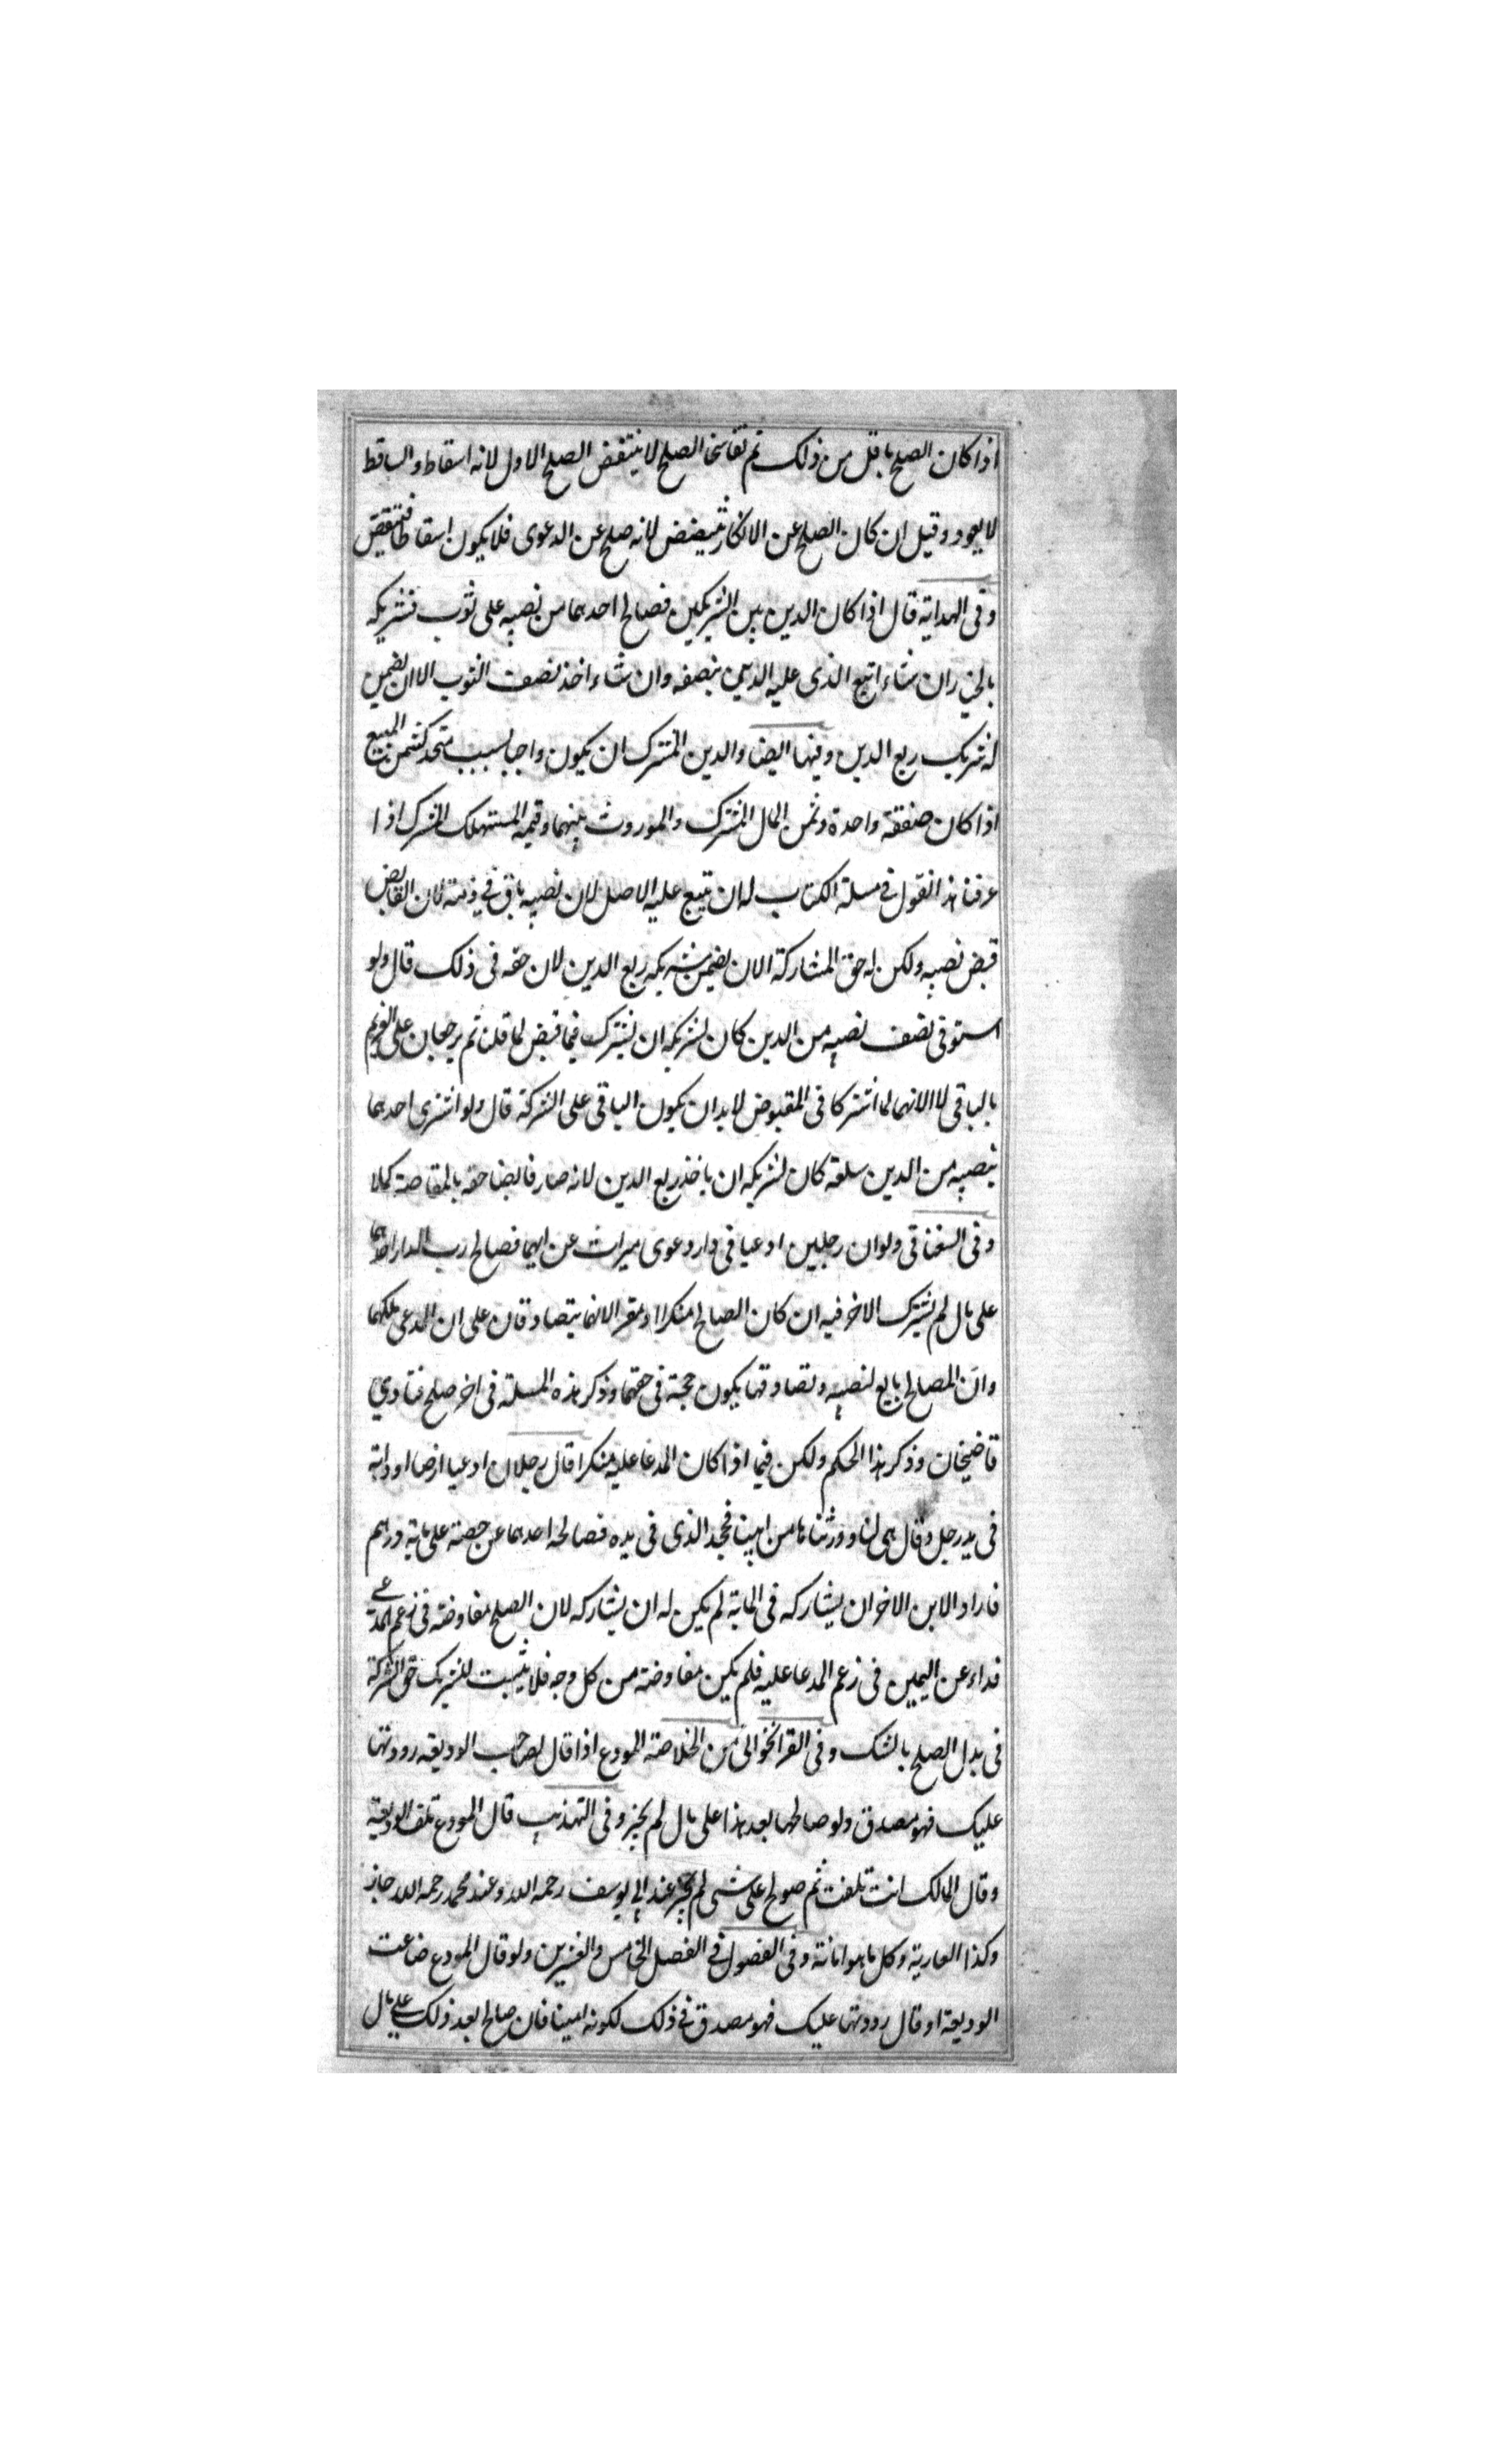 اذا كان الصلح باقل من ذلك ثم تفاسخا الصلح لا ينتقض الصلح الاول لانه اسقاط والساقط
لا يعود وقيل ان كان الصلح عن الانكار لانه صلح عن الدعوى فلا يكون اسقاطا فينتقض
وفى الهداية قال اذا كان الدين بين الشريكين فصالح احدهما من نصيبه على ثوب فشريكه
بالخيار ان شاء اتبع الذى عليه الدين بنصفه وان شاء اخذ نصف الثوب الا ان يضمن
له شريك ربع الدين وفيها ايضا والدين المشترك ان يكون واجبا بسبب متحد كثمن المبيع
اذا كان صفقة واحدة وثمن المال المشترك والموروث بينهما وقيمة المستهلك المشترك اذا
عرفنا هذا نقول فى مسئلة الكتاب له ان يتبع عليه الاصل لان نصيبه باق فى ذمته لان القابض
قبض نصيبه ولكن له حق المشاركة الا ان يضمن شريكه ربع الدين لان حقه فى ذلك قال ولو
استوفى نصف نصيبه من الدين كان لشريكه ان يشترك فيما قبض لما قلنا ثم يرجعان على الغريم
بالباقى لانهما لما اشتركا فى المقبوض لابد ان يكون الباقى على الشركة قال ولو اشترى احدهما
بنصيبه من الدين سلعة كان لشريكه ان ياخذ ربع الدين لانه صار قابضا حقه بالمقاصة كملا
وفى السغناقى ولو ان رجلين ادعيا فى دار دعوى ميراث عن ابيهما فصالح رب الدار احدهما
على مال لم يشترك الاخر فيه ان كان الصالح منكرا او مقرا لانهما يتصادقان على ان المدعى ملكهما
وان المصالح بايع لنصيبه وتصادقهما يكون حجة فى حقهما وذكر هذه المسئلة فى اخر صلح فتاوى
قاضيخان وذكر هذا الحكم ولكن فيما اذا كان المدعا عليه منكرا قال رجلان ادعيا ارضا او دابة
فى يد رجل وقال هى لنا وورثناها من ابينا فجحد الذى فى يده فصالحه احدهما عن حصته على ماية درهم
فاراد الابن الاخر ان يشاركه فى الماية لم يكن له ان يشاركه لان الصلح مفاوضة فى زعم المدعى
فداء عن اليمين فى زعم المدعا عليه فلم يكن مفاوضة من كل وجه فلا يثبت للشريك حق الشركة
فى بدل الصلح بالشك وفى القراخوانى من الخلاصة المودع اذا قال لصاحب الوديعة رددتها
عليك فهو مصدق ولو صالحها بعد هذا على مال لم يجز وفى التهذيب قال المودع تلف الوديعة
وقال المالك انت تلفت ثم صولح على شى لم يجز عند ابى يوسف رحمه الله وعند محمد رحمه الله جاز
وكذا العارية وكل ما هو امانة وفى الفصول فى الفصل الخامس والعشرين ولو قال المودع ضاعت
الوديعة او قال رددتها عليك فهو مصدق فى ذلك لكونه امينا فان صالح بعد ذلك على مال